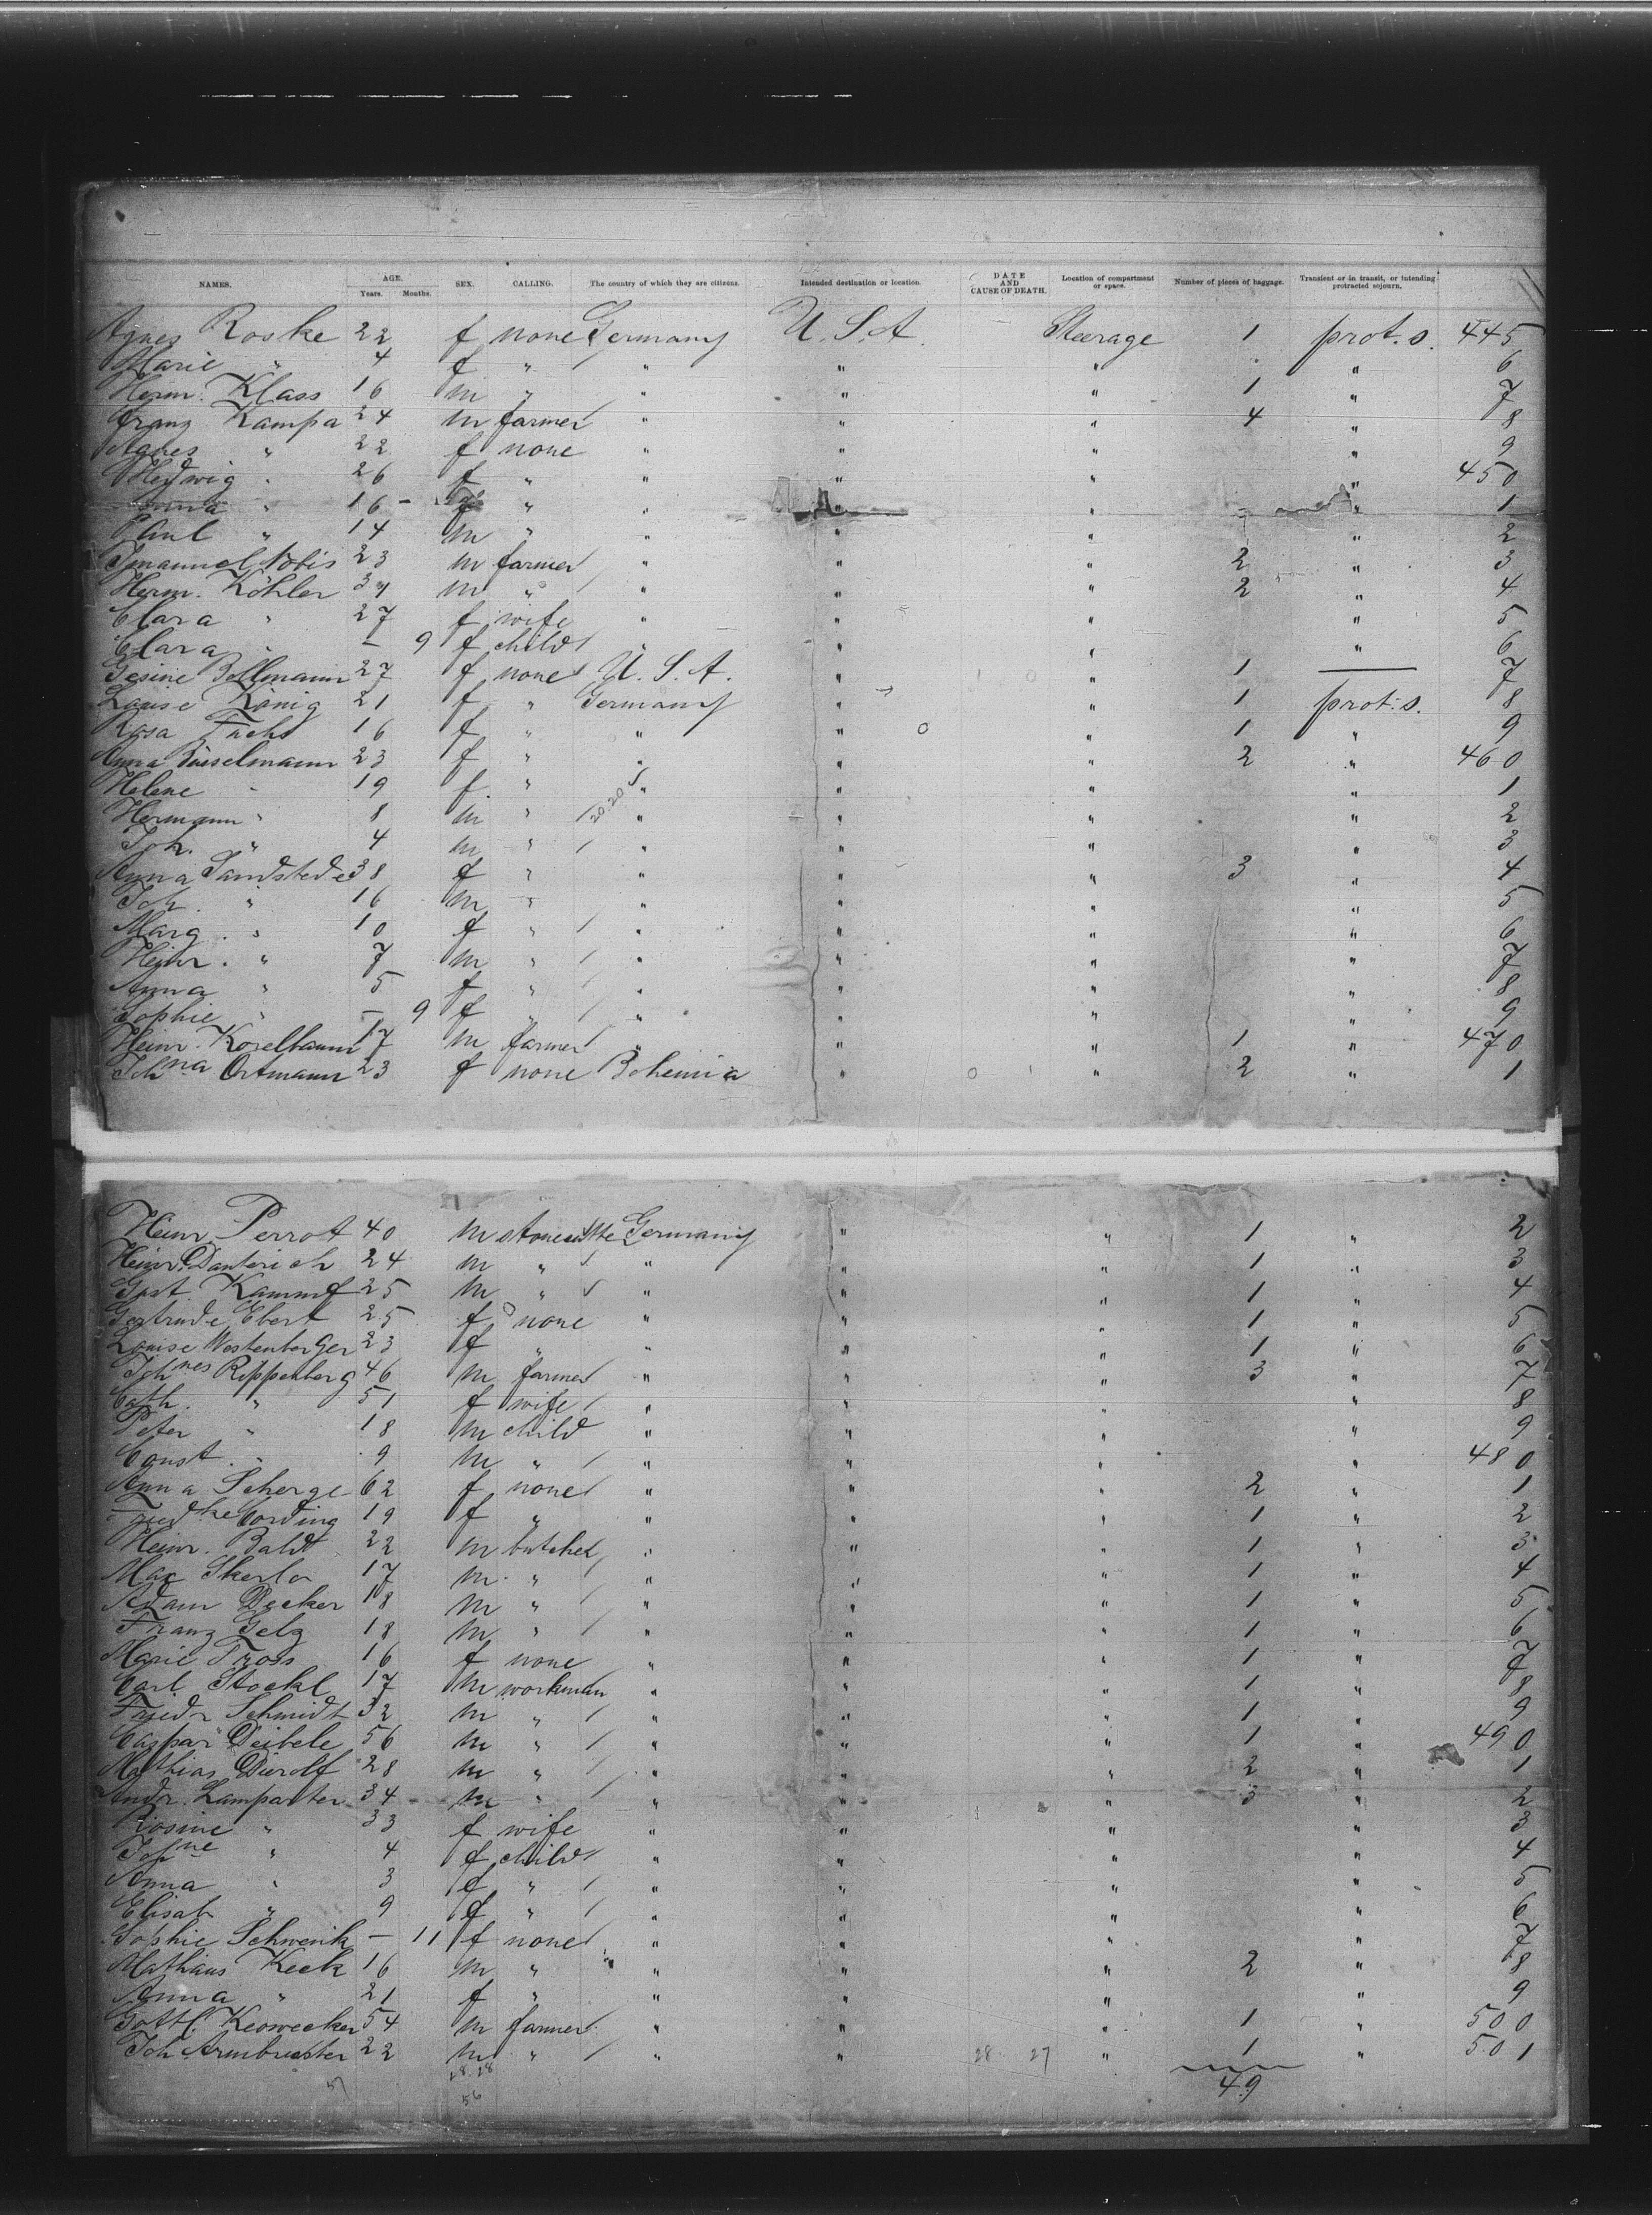 NAMES. AGE. Years. Months. SEX. CALLING. The country of which they are citizens. Intended destination or location. DATE AND CAUSE OF DEATH. Location of compartment or space. Number of pieces of baggage. Transient or in transit, or intending protracted sojourn.
Agnes Roske 22 f none Germany U.S.A. Steerage 1 prot. s. 445
Marie " 4 f " " " " " 6
Herm. Klass 16 m " " " " 1 " 7
Franz Kampa 24 m farmer " " " 4 " 8
Agnes " 22 f none " " " " 9
Hedwig " 26 f " " " " " 450
Anna " 16 - f " " " " " 1
Paul " 14 m " " " " " 2
Immanuel Nobis 23 m farmer " " " 2 " 3
Herm. Köhler 34 m " " " " 2 " 4
Clara " 27 f wife " " " " 5
Clara " - 9 f child " " " " 6
Gesine Bollmann 27 f none U.S.A. " " 1 — 7
Louise König 21 f " Germany " " 1 prot. s. 8
Rosa Fuchs 16 f " " " " 1 " 9
Anna Büselmann 23 f " " " " 2 " 460
Helene " 19 f. " " " " " 1
Hermann " 8 m " 20.20 " " " " 2
Joh. " 4 m " " " " " 3
Anna Sandstede 38 f " " " " 3 " 4
Joh. " 16 m " " " " " 5
Marg. " 10 f " " " " " 6
Heinr. " 7 m " " " " " 7
Anna " 5 f " " " " " 8
Sophie " - 9 f " " " " " 9
Heinr. 17 m farmer " " " 1 " 470
Johna Ortmann 23 f none Bohemia " " 2 " 1
Heinr. Perrot 40 m Germany " " 1 " 2
Heinr. 24 m " " " " 1 " 3
Gust. 25 m " " " " 1 " 4
Gertrude Ebert 25 f none " " " 1 " 5
Louise Westenberger 23 f " " " " 1 " 6
Johnes Rippelberg 46 m farmer " " " 3 " 7
Cath. " 51 f wife " " " " 8
Peter " 18 m child " " " " 9
Const. " 9 m " " " " " 480
Anna Scherge 62 f none " " " 2 " 1
Friedke Cording 19 f " " " " 1 " 2
Heinr. Baldt 22 m butcher " " " 1 " 3
Max 17 m " " " " 1 " 4
Adam Decker 18 m " " " " 1 " 5
Franz Gelz 18 m " " " " 1 " 6
Marie Tross 16 f none " " " 1 " 7
Carl Stockl 17 m workman " " " 1 " 8
Friedr Schmidt 32 m " " " " 1 " 9
Caspar Deibele 56 m " " " " 1 " 490
Mathias Dierolf 28 m " " " " 2 " 1
Andr. Lamparter 34 m " " " " 3 " 2
Rosine " 33 f wife " " " " 3
Johne " 4 f child " " " " 4
Anna " 3 f " " " " " 5
Elisab " 9 f " " " " " 6
Sophie Schwenk - 11 f none " " " " 7
Mathäus Keck 16 m " " " " 2 " 8
Anna " 21 f " " " " " 9
Gottl. 54 m farmer " " " 1 " 500
Joh Armbruster 22 m " " " 28 27 " 1 " 501
28.28
49
57 56